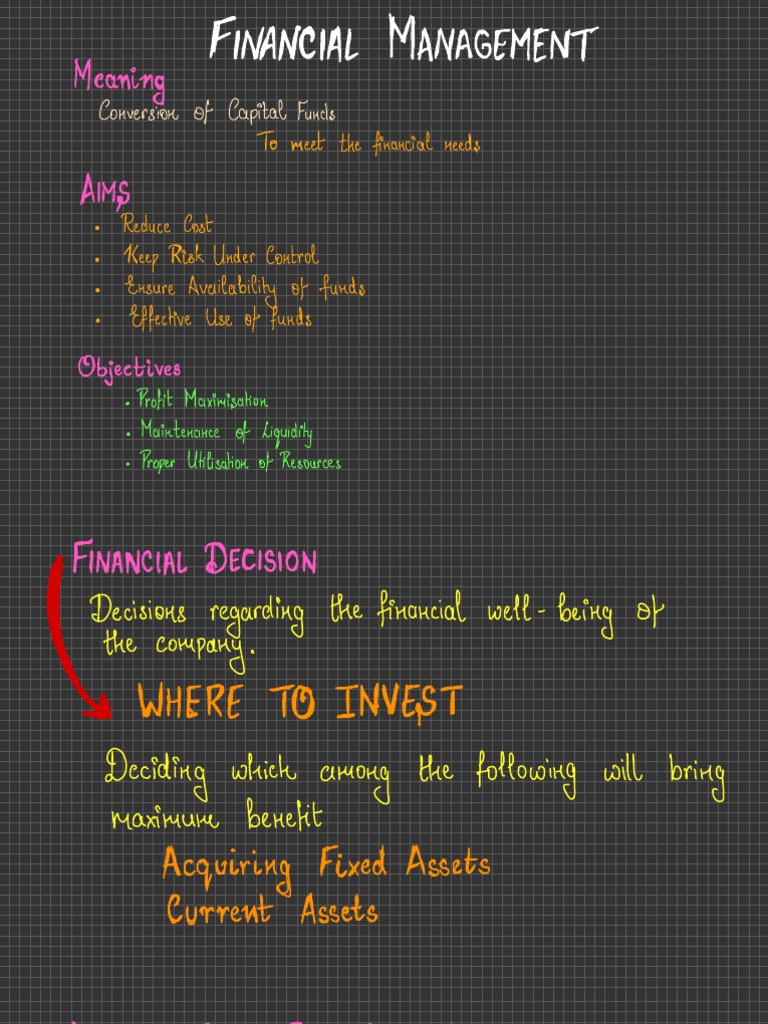 FINANCIAL MANAGEMENT
Meaning
Conversion of Capital Funds
To meet the financial needs
AIMS
• Reduce Cost
• Keep Risk Under Control
• Ensure Availability of funds
• Effective Use of funds
Objectives
• Profit Maximisation
• Maintenance of Liquidity
• Proper Utilisation of Resources
FINANCIAL DECISION
Decisions regarding the financial well-being of
the company.
WHERE TO INVEST
Deciding which among the following will bring
maximum benefit
Acquiring Fixed Assets
Current Assets